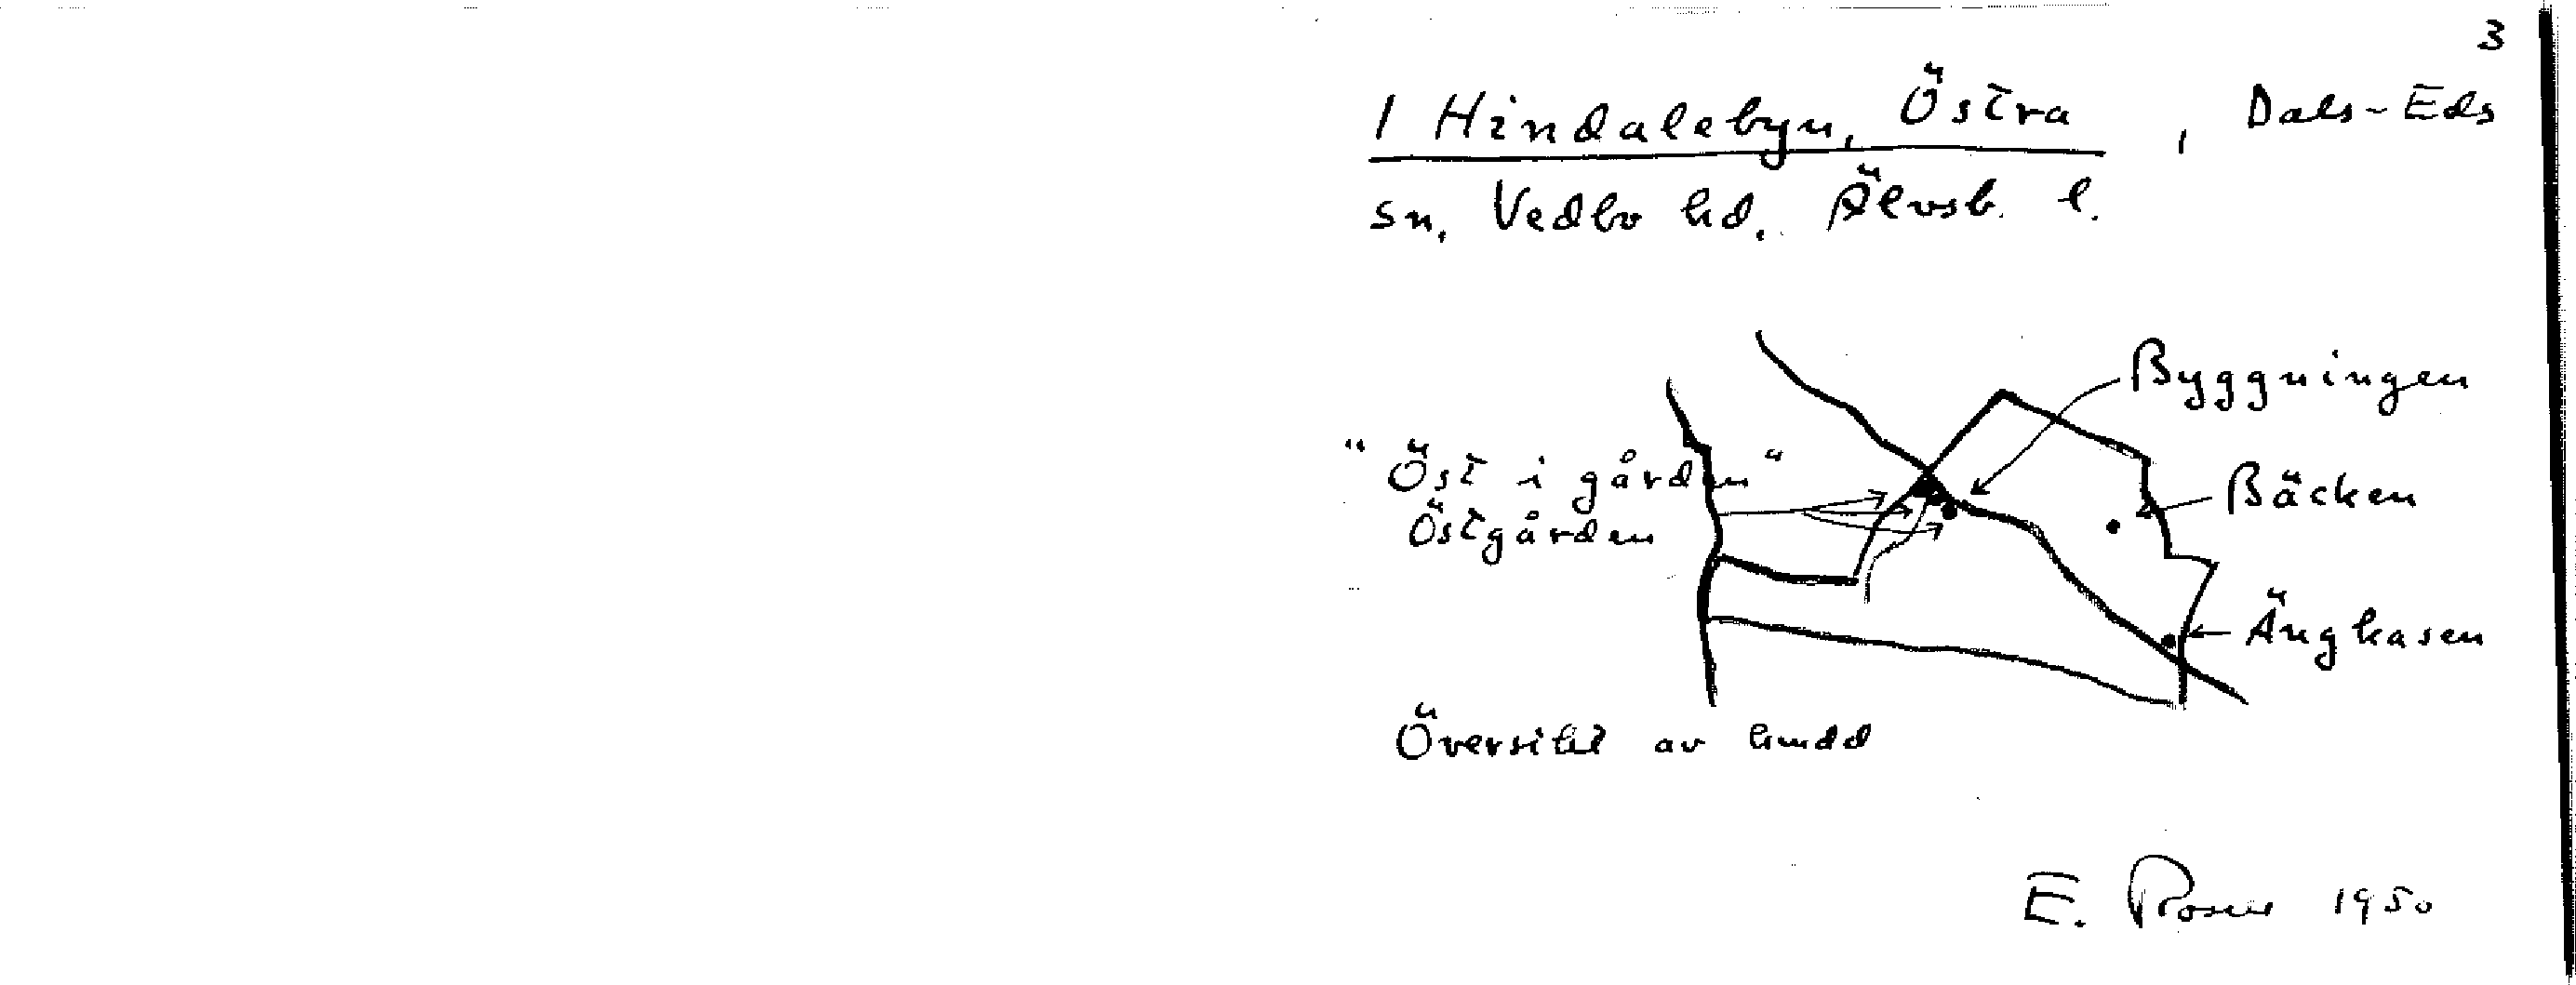 3
1 Hindalebyn, Östra, Dals-Eds
sn. Vedbo hd. Älvsb. l.
Byggningen
"Öst i gården"
Östgården
Bäcken
Ängkasen
Översikt av
E. 1950